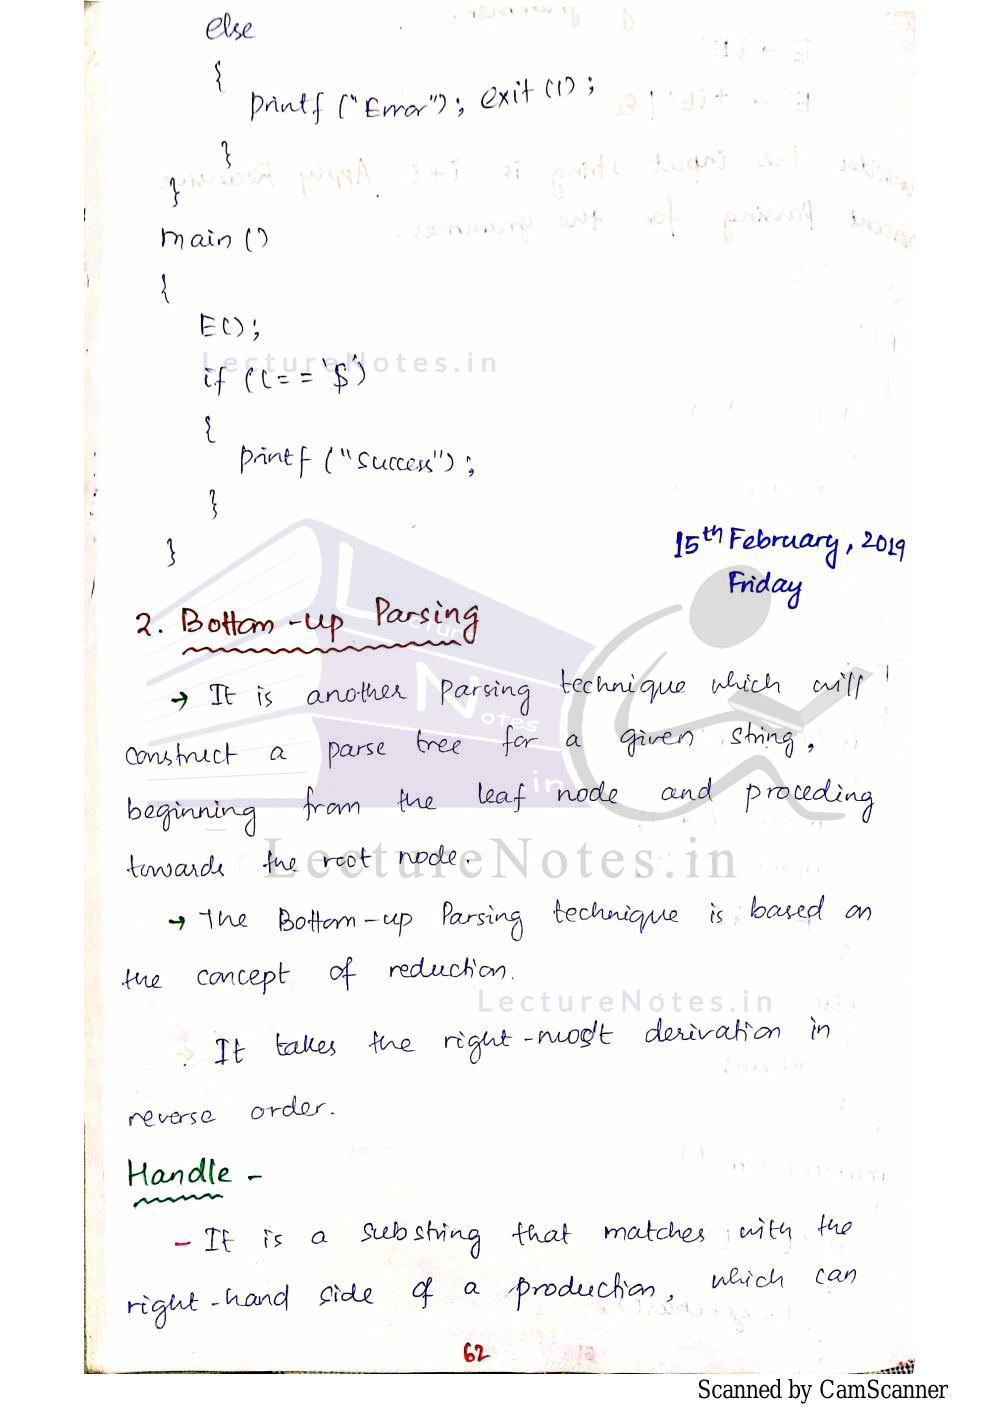 else
{
printf ("Error"); exit (1);
}
}
main ()
{
E();
LectureNotes.in
if (l == '$')
{
printf ("Success");
}
}
15th February, 2019
Friday
2. Bottom-up Parsing
→ It is another parsing technique which will
construct a parse tree for a given string,
beginning from the leaf node and proceding
towards the root node.
LectureNotes.in
→ The Bottom-up Parsing technique is based on
the concept of reduction.
LectureNotes.in
→ It takes the right-most derivation in
reverse order.
Handle -
- It is a substring that matches with the
right-hand side of a production, which can
62
Scanned by CamScanner